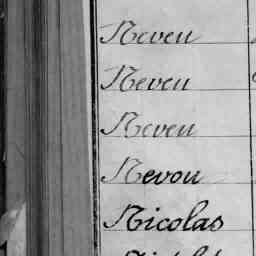 Neveu
Neveu
Neveu
Nevou
Nicolas